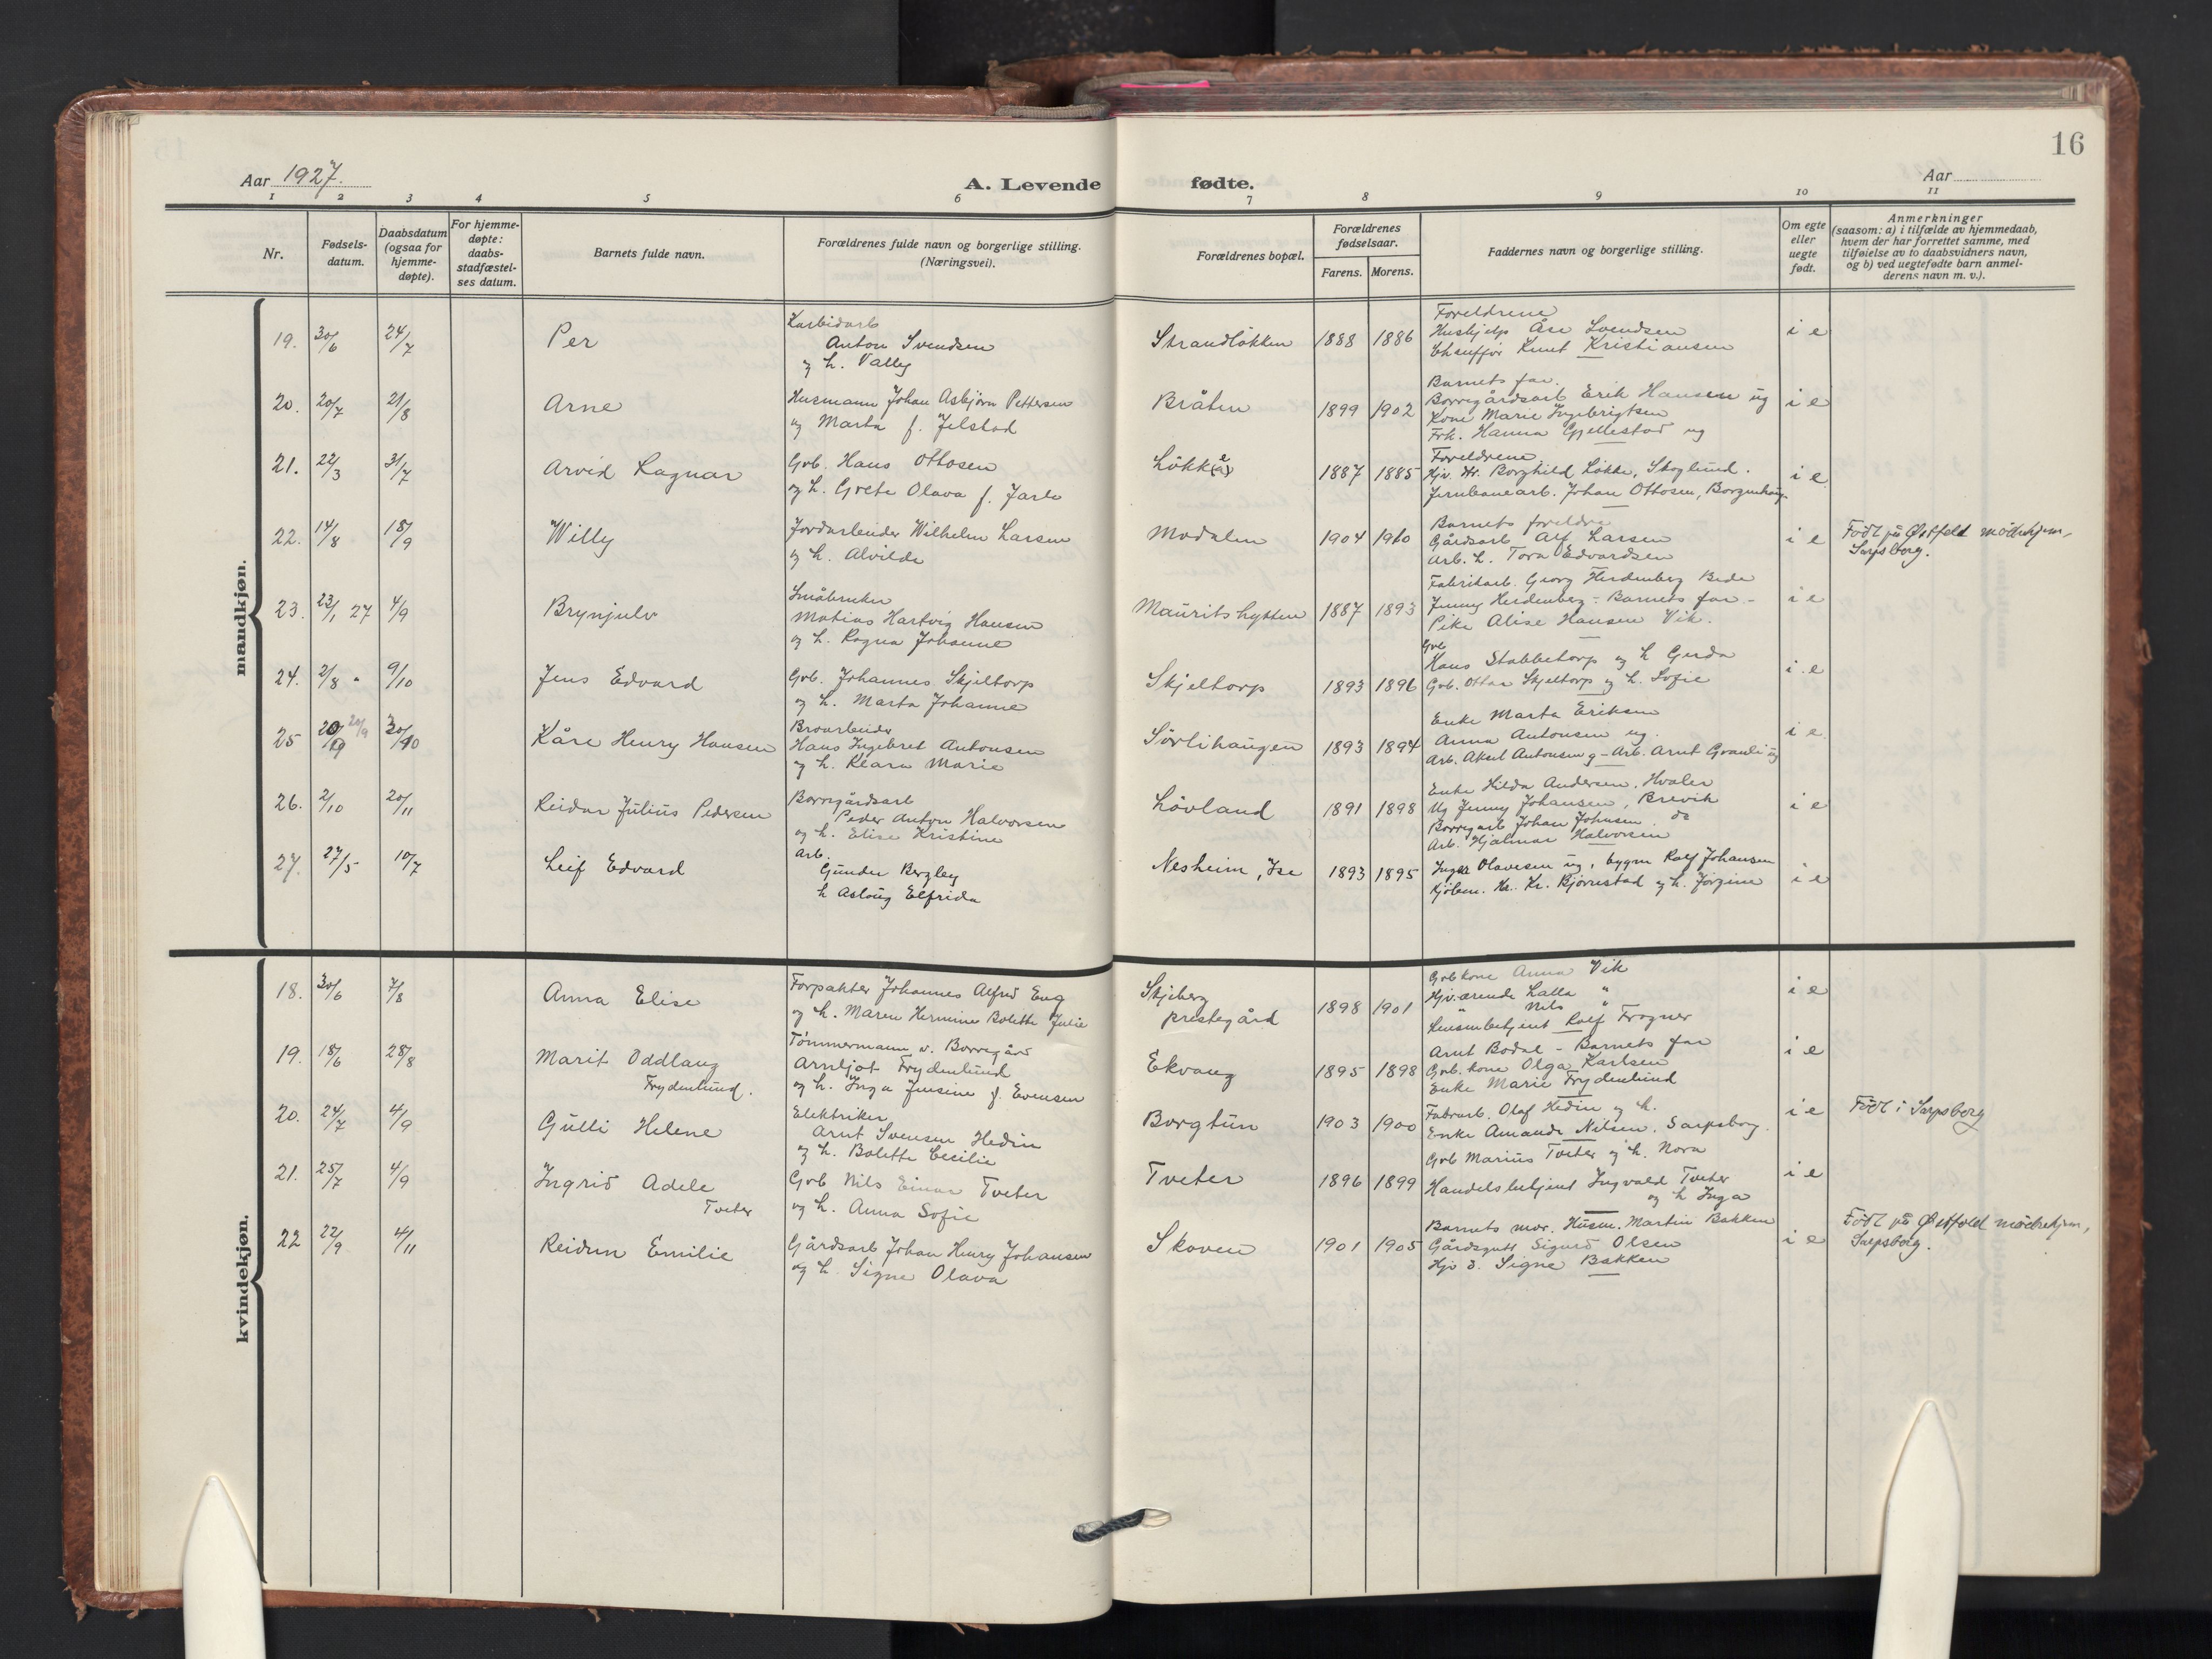 16
Aar 1927.
A. Levende fødte.
Aar
1 2 3 4 5 6 7 8 9 10 11
Nr.
Fødsels-
datum.
Daabsdatum
(ogsaa for
hjemme-
døpte).
For hjemme-
døpte:
daabs-
stadfæstel-
ses datum.
Barnets fulde navn.
Forældrenes fulde navn og borgerlige stilling.
(Næringsvei).
Forældrenes bopæl.
Forældrenes
fødselsaar.
Farens. Morens.
Faddernes navn og borgerlige stilling.
Om egte
eller
uegte
født.
Anmerkninger
(saasom: a) i tilfælde av hjemmedaab,
hvem der har forrettet samme, med
tilføielse av to daabsvidners navn,
og b) ved uegtefødte barn anmel-
derens navn m. v.).
mandkjøn.
19. 30/6 24/7 Per
Karbidarb
Anton Svendsen
og h. Vally
Strandløkken 1888 1886
Foreldrene
Hushjelp Åse Svendsen
Chauffør Knut Kristiansen
i e
20. 20/7 21/8 Arne
Husmann Johan Asbjørn Pettersen
og Marta f. Jelstad
Bråten 1899 1902
Barnets far.
Borregårdsarb Erik Hansen ug
Kone Marie Ingebrigtsen
Frk. Hanna Gjellestad ug
i e
21. 22/3 31/7 Arvid Ragnar
Grb. Hans Ottosen
og h. Grete Olava f. Jarle
Løkke 1887 1885
Foreldrene
Hjv. Borghild Løkke, Skoglund.
Jernbanearb. Johan Ottosen, Borgenhaug.
i e.
22. 14/8 18/9 Willy
Jordarbeider Wilhelm Larsen
og h. Alvilde
Modalen 1904 1910
Barnets foreldre
Gårdsarb Alf Larsen
Arb. h. Tora Edvardsen
i e
Født på Østfold mødrehjem,
Sarpsborg.
23. 23/1 27 4/9 Brynjulv
Småbruker
Matias Hartvig Hansen
og h. Ragna Johanne
Mauritshytten 1887 1893
Fabrikarb. Georg Herdenberg Bede
Jenny Herdenberg - Barnets far -
Pike Alise Hansen Vik.
i e
24. 2/8 " 9/10 Jens Edvard
Grb. Johannes Skjeltorp
og h. Marta Johanne
Skjeltorp 1893 1896
Grb
Hans Stabbetorp og h Gerda
Grb. Ottar Skjeltorp og h. Sofie
i e
25 20/9 20/9 30/10 Kåre Henry Hansen
Broarbeider
Hans Ingebret Antonsen
og h. Klara Marie
Sørlihaugen 1893 1894
Enke Marta Eriksen
Anna Antonsen ug.
Arb. Aksel Antonsen g - Arb. Arnt Granli ug
i e.
26. 2/10 20/11 Reidar Julius Pedersen
Borregårdsarb
Peder Anton Halvorsen
og h. Elise Kristine
Løvland 1891 1898
Enke Hilda Andersen, Hvaler
Ug Jenny Johansen, Brevik
Borregarb Johan Johnsen do
Arb. Hjalmar Halvorsen
i e
27. 27/5 10/7 Leif Edvard
Arb.
Gunder Bergby
h Aslaug Elfrida
Nesheim, Ise 1893 1895
Inger Olavesen ug, bygm Ralf Johansen
Kjøbm. Kr. Kr. Bjørnestad og h. Jørgine
i e
kvindekjøn.
18. 30/6 7/8 Anna Elise
Forpakter Johannes Alfred Eng
og h. Maren Hermine Bolette Julie
Skjeberg
prestegård 1898 1901
Grb kone Anna Vik
Hjv. ærende Lalla "
" Nils "
Lensmbetjent Ralf Frogner
i e
19. 18/6 28/8 Marit Oddlaug
Frydenlund.
Tømmermann v. Borregård
Arnljot Frydenlund
og h. Inga Jensine f. Evensen
Ekvang 1895 1898
Arnt Bodal - Barnets far
Grb. kone Olga Karlsen
Enke Marie Frydenlund
i e
20. 24/7 4/9 Gulli Helene
Elektriker
Arnt Svensen Hedin
og h. Bolette Cecilie
Borgtun 1903 1900
Fabrarb. Olaf Hedin og h.
Enke Amande Nilsen, Sarpsborg.
i e
Født i Sarpsborg
21. 25/7 4/9 Ingrid Adele
Tveter
Grb Nils Einar Tveter
og h. Anna Sofie
Tveter 1896 1899
Grb Marius Tveter og h. Nora
Handelsbetjent Ingvald Tveter
og h Inga
i e
22 22/9 4/11 Reidun Emilie
Gårdsarb Johan Henry Johansen
og h. Signe Olava
Skoven 1901 1905
Barnets mor. Husm. Martin Bakken
Gårdsgutt Sigurd Olsen
Hjv d. Signe Bakken
i e
Født på Østfold mødrehjem,
Sarpsborg.